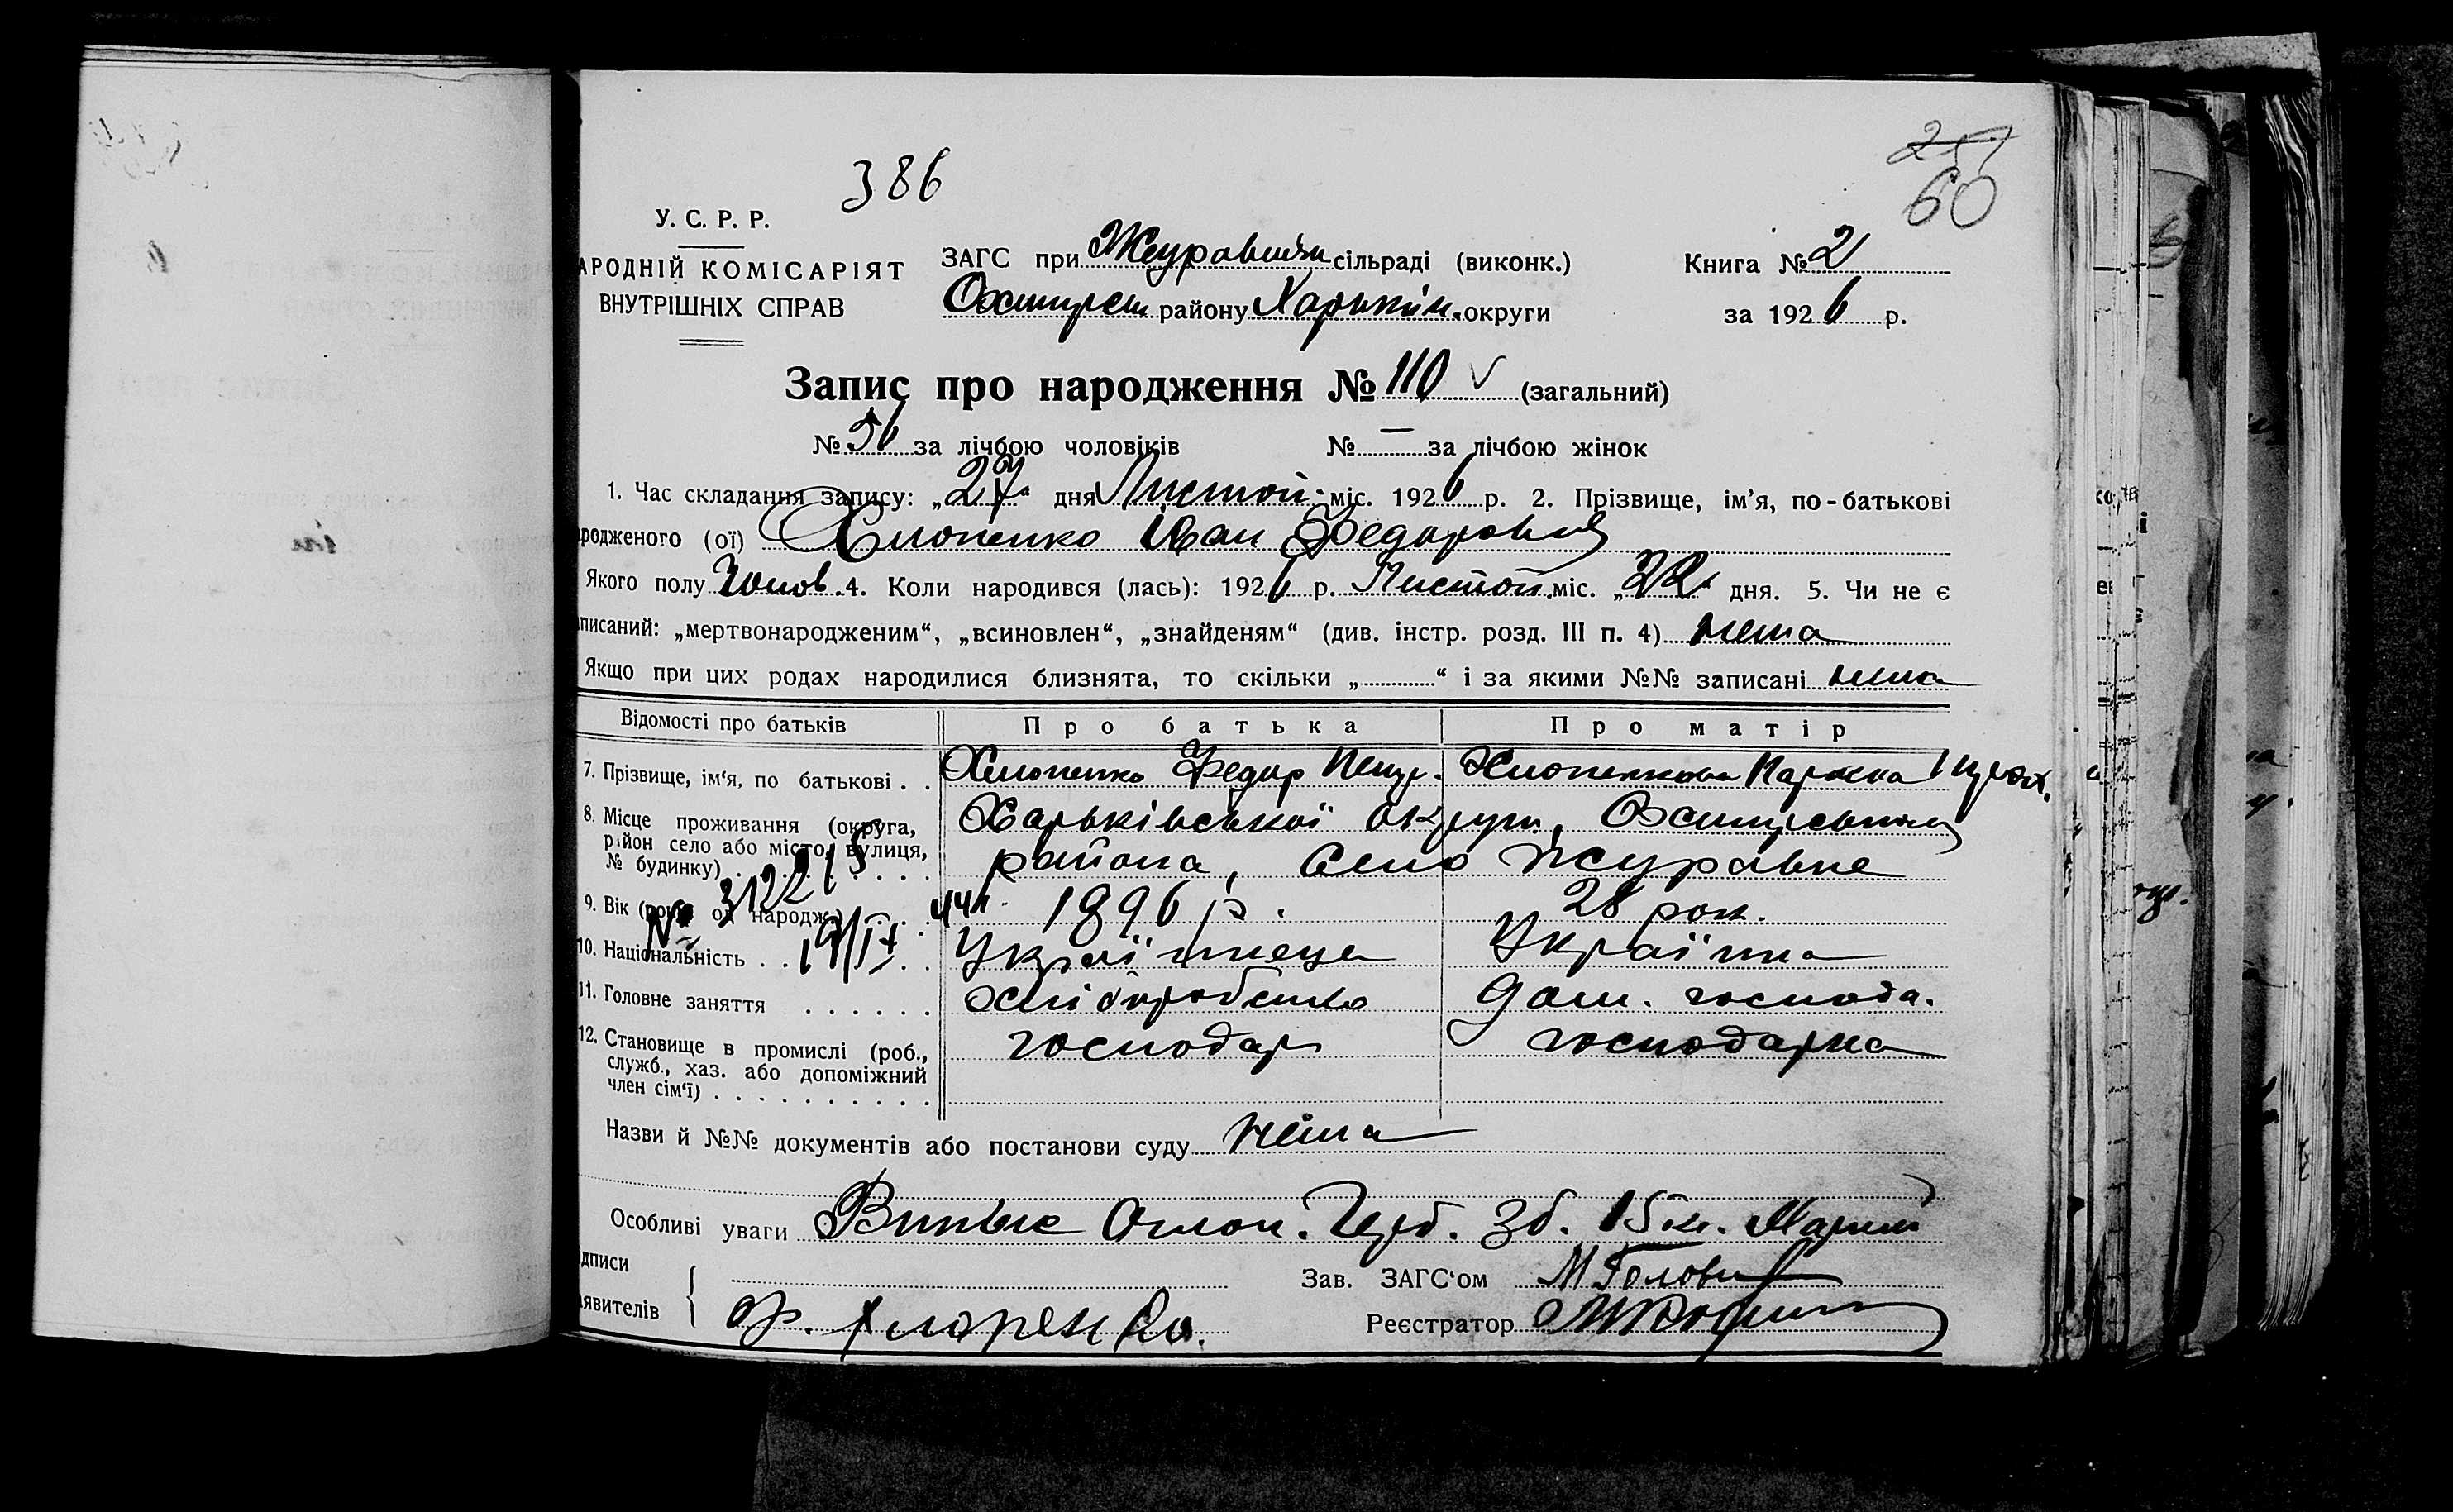 251
60
386
У. С. Р. Р.
АРОДНІЙ КОМІСАРІЯТ
ВНУТРІШНІХ СПРАВ
ЗАГС при сільраді (виконк.)
районуХарьків. округи
Книга № 2
за 1926 р.
Запис про народження № 110 √ (загальний)
№ 56 за лічбою чоловіків № — за лічбою жінок
1. Час складання запису: „27“ дня Листоп. міс. 1926 р. 2. Прізвище, ім’я, по-батькові
родженого (ої) Хлопенко Іван Федорович
Якого полу Чолов. 4. Коли народився (лась): 1926 р. Листоп. міс. „22“ дня. 5. Чи не є
писаний: „мертвонародженим“, „всиновлен“, „знайденям“ (див. інстр. розд. III п. 4) нема
Якщо при цих родах народилися близнята, то скільки „ “ і за якими №№ записані нема
Відомості про батьків Про батька Про матір
7. Прізвище, ім‘я, по батькові . . Хлопенко Федор Хлопенкова
8. Місце проживання (округа, район село або місто, вулиця, № будинку) Харьківської округи,
района, Село Журавне
9. Вік (рокв од народж.) 1896 р. 28 рок.
№ 3122215
19/IX 44
10. Національність . . Українець Українка
11. Головне заняття . . . . . . хліборобство дом. господ.
12. Становище в промислі (роб., служб., хаз. або допоміжний член сім‘ї) господар господарка
Назви й №№ документів або постанови суду нема
Особливі уваги
дписи
явителів
Ф. Хлопенко.
Зав. ЗАГС‘ом
Реєстратор